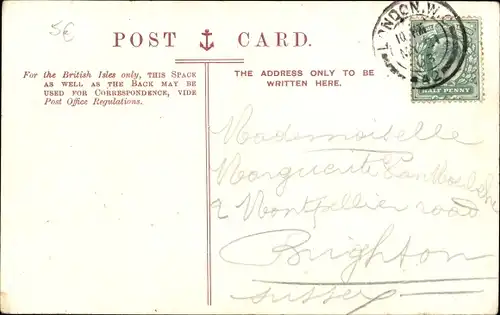 5€
POST CARD.
For the British Isles only, THIS SPACE
AS WELL AS THE BACK MAY BE
USED FOR CORRESPONDENCE, VIDE
Post Office Regulations.
THE ADDRESS ONLY TO BE
WRITTEN HERE.
LONDON. W.C
HALF PENNY
Mademoiselle
Marguerite
2 Montpellier road
Brighton
Sussex